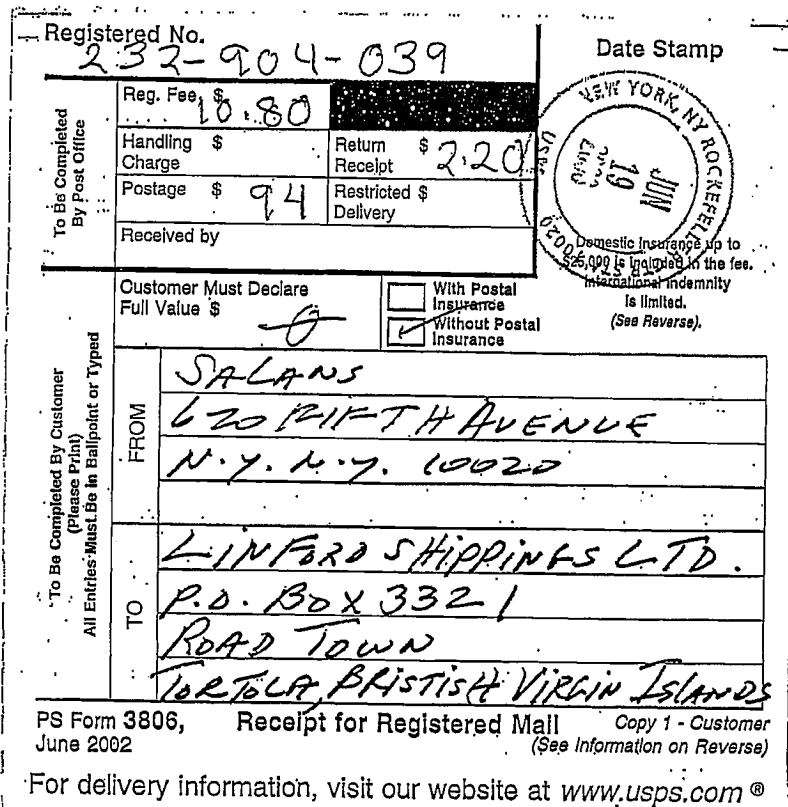 Registered No.
232-904-039
Date Stamp
To Be Completed
By Post Office
Reg. Fee $ 10.80
Handling Charge $
Return Receipt $ 2.20
Postage $ 94
Restricted Delivery $
Received by
NEW YORK, NY ROCKEFELLER
JUN
19
USPS
10020
Domestic Insurance up to
$25,000 is included in the fee.
International Indemnity
is limited.
(See Reverse).
Customer Must Declare
Full Value $ 0
With Postal
Insurance
Without Postal
Insurance
To Be Completed By Customer
(Please Print)
All Entries Must Be in Ballpoint or Typed
FROM
SALANS
620 FIFTH AVENUE
N.Y. N.Y. 10020
TO
LINFORD SHIPPINGS LTD.
P.O. BOX 3321
ROAD TOWN
TORTOLA, BRISTISH VIRGIN ISLANDS
PS Form 3806,
June 2002
Receipt for Registered Mail
Copy 1 - Customer
(See Information on Reverse)
For delivery information, visit our website at www.usps.com ®